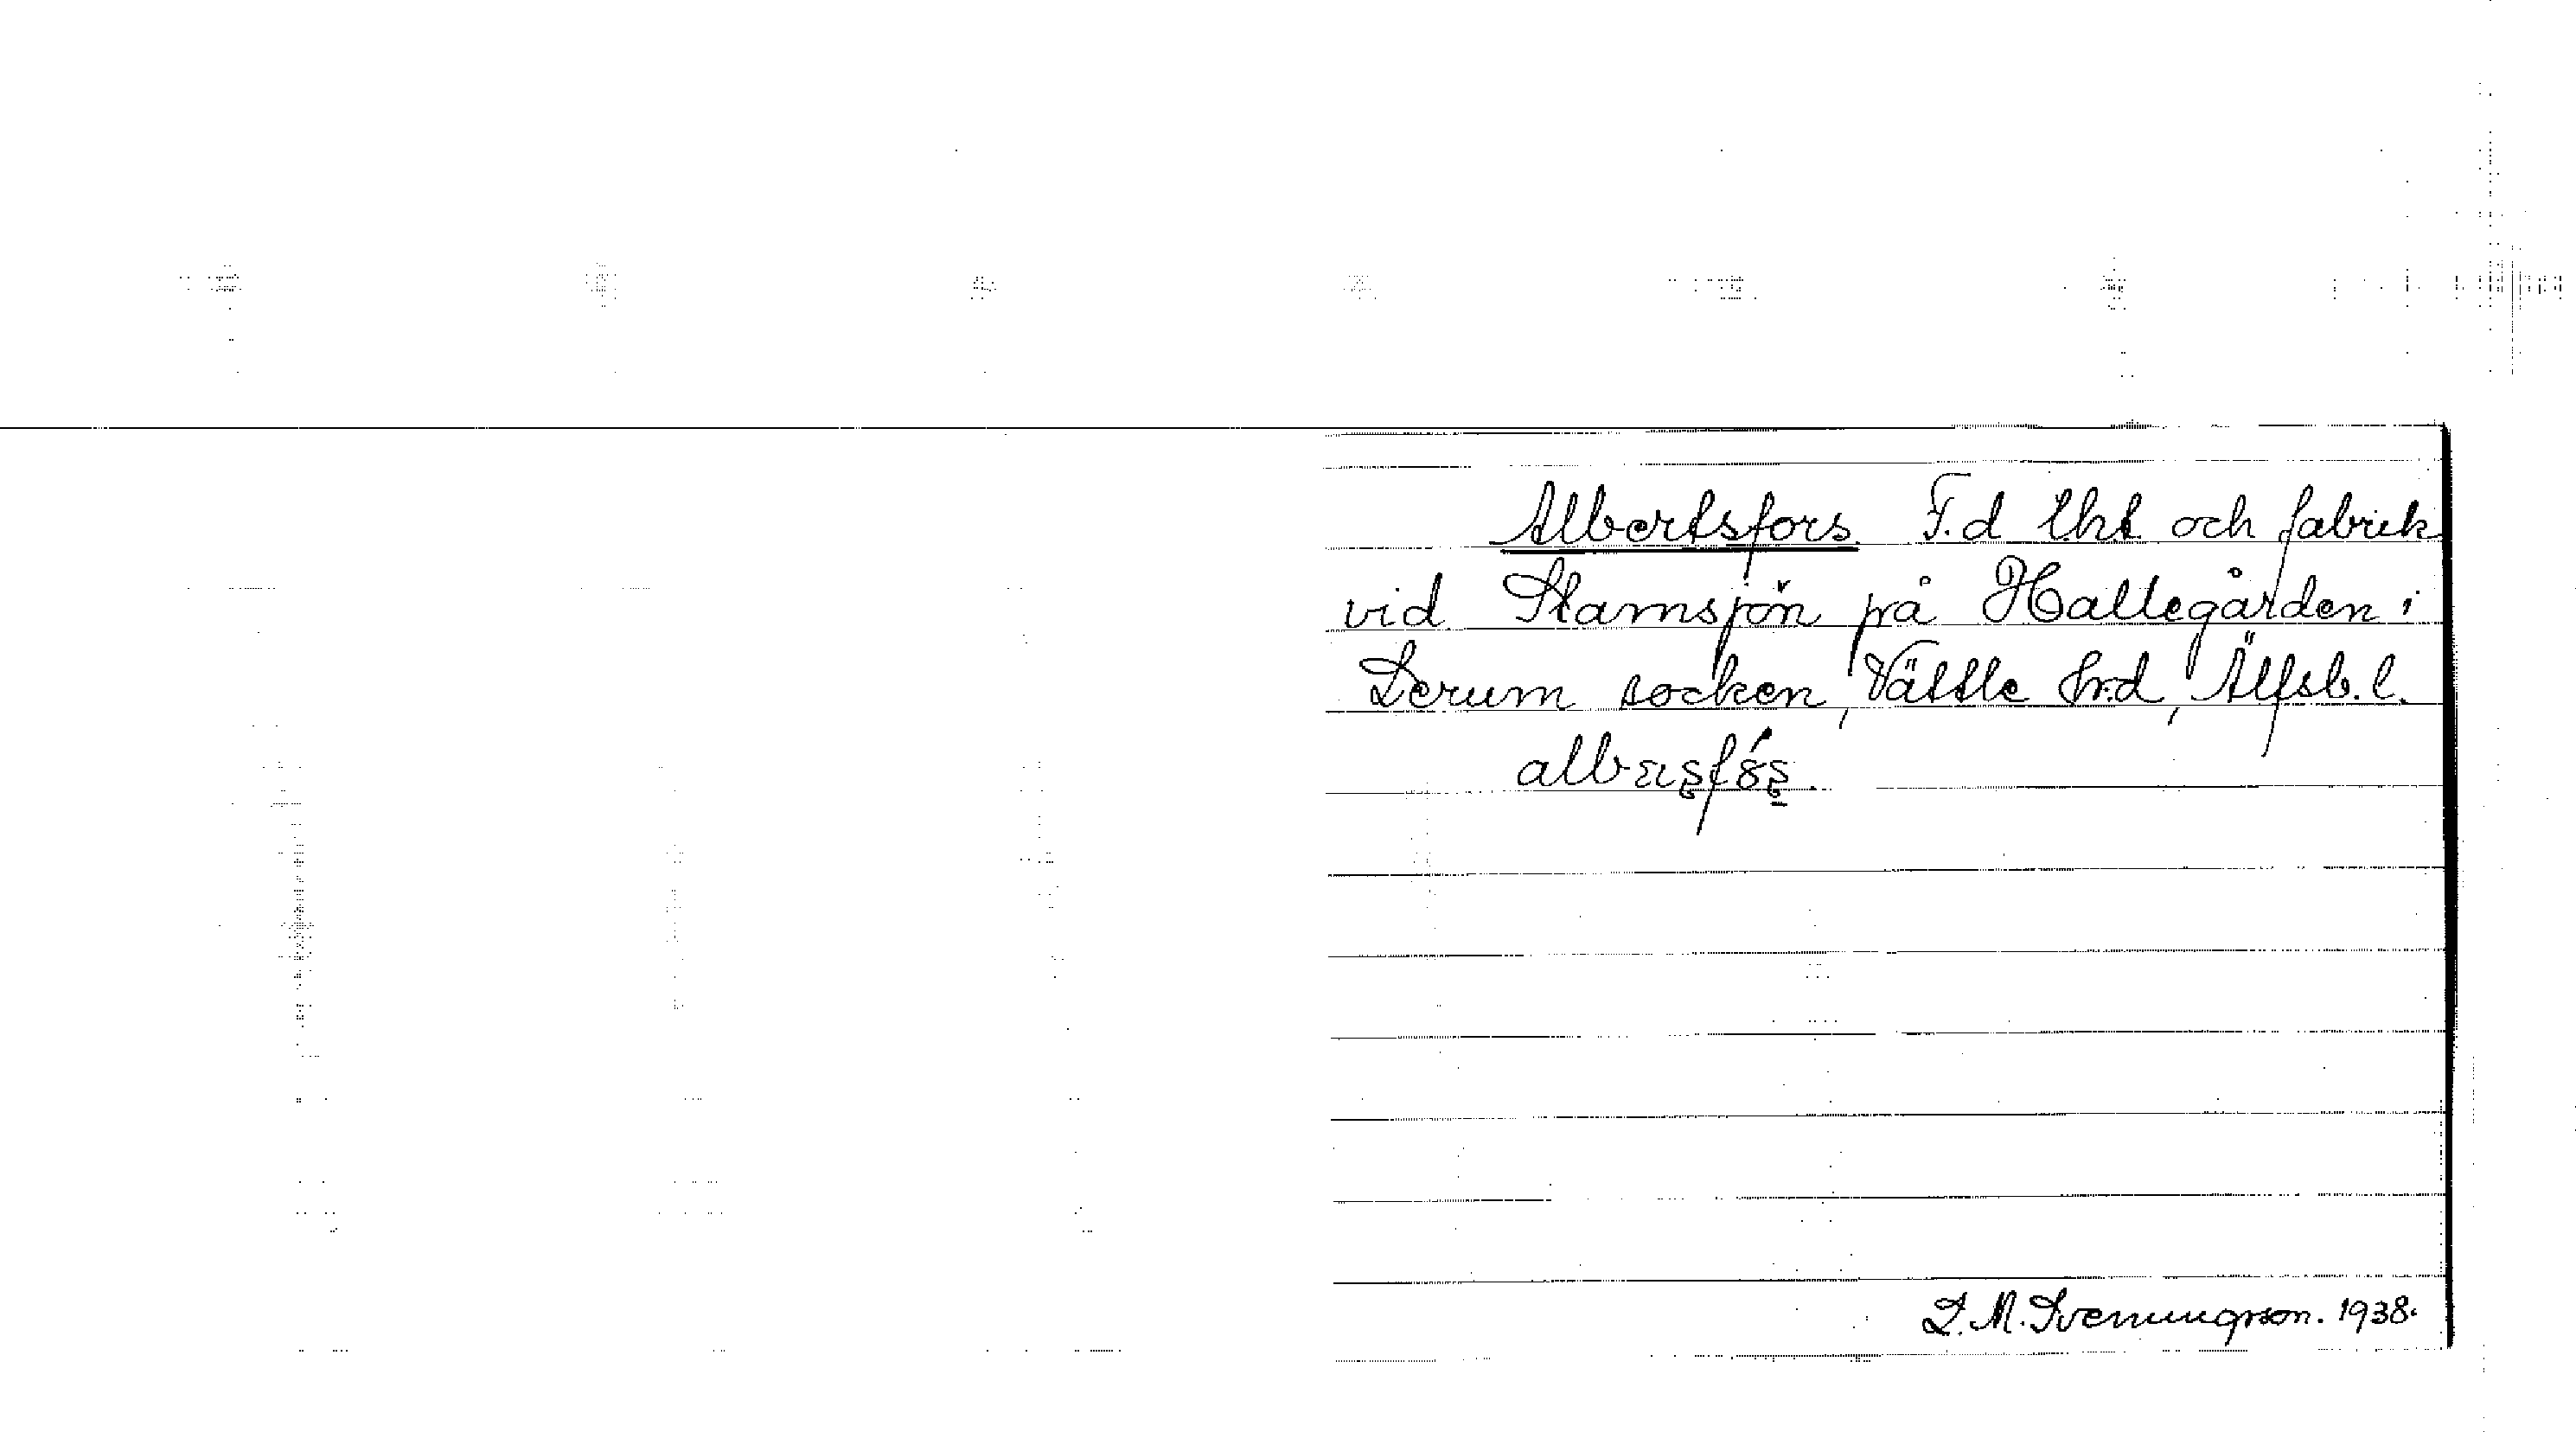 Albertsfors. F.d lht och fabrik
vid Stamsjön på Hallegården i
Lerum socken, Vättle hrd, Älfsb. l.
L. M. Svenungsson. 1938.